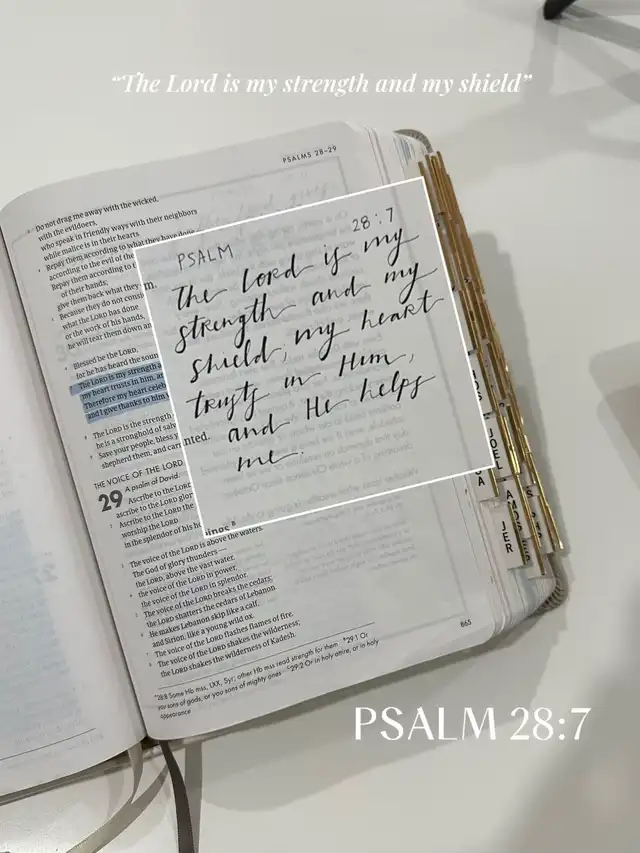 “The Lord is my strength and my shield”
PSALMS 28–29
Do not drag me away with the wicked,
with the evildoers,
who speak in friendly ways with their neighbors
while malice is in their hearts.
4 Repay them according to what they have done
according to the evil of the
Repay them according to t
of their hands;
give them back what they
5 Because they do not consi
what the LORD has done
or the work of his hands,
he will tear them down an
6 Blessed be the LORD,
for he has heard the soun
7 The LORD is my strength a
my heart trusts in him, a
Therefore my heart celeb
and I give thanks to him
8 The LORD is the strength
he is a stronghold of salv
9 Save your people, bless y
shepherd them, and car
THE VOICE OF THE LORD
A psalm of David.
29 Ascribe to the LORD
ascribe to the LORD glor
2 Ascribe to the LORD the
worship the LORD
in the splendor of his ho
3 The voice of the LORD is above the waters.
The God of glory thunders—
the LORD, above the vast water,
4 the voice of the LORD in power,
the voice of the LORD in splendor.
5 The voice of the LORD breaks the cedars;
the LORD shatters the cedars of Lebanon.
6 He makes Lebanon skip like a calf,
and Sirion, like a young wild ox.
7 The voice of the LORD flashes flames of fire.
8 The voice of the LORD shakes the wilderness;
the LORD shakes the wilderness of Kadesh.
28:8 Some Hb mss, LXX, Syr; other Hb mss read strength for them 29:1 Or
you sons of gods, or you sons of mighty ones 29:2 Or in holy attire, or in holy
appearance
865
PSALM 28:7
The Lord is my
strength and my
shield, my heart
trusts in Him,
and He helps
me.
m.
nted.
JOEL
AMOS
JER
PSALM 28:7